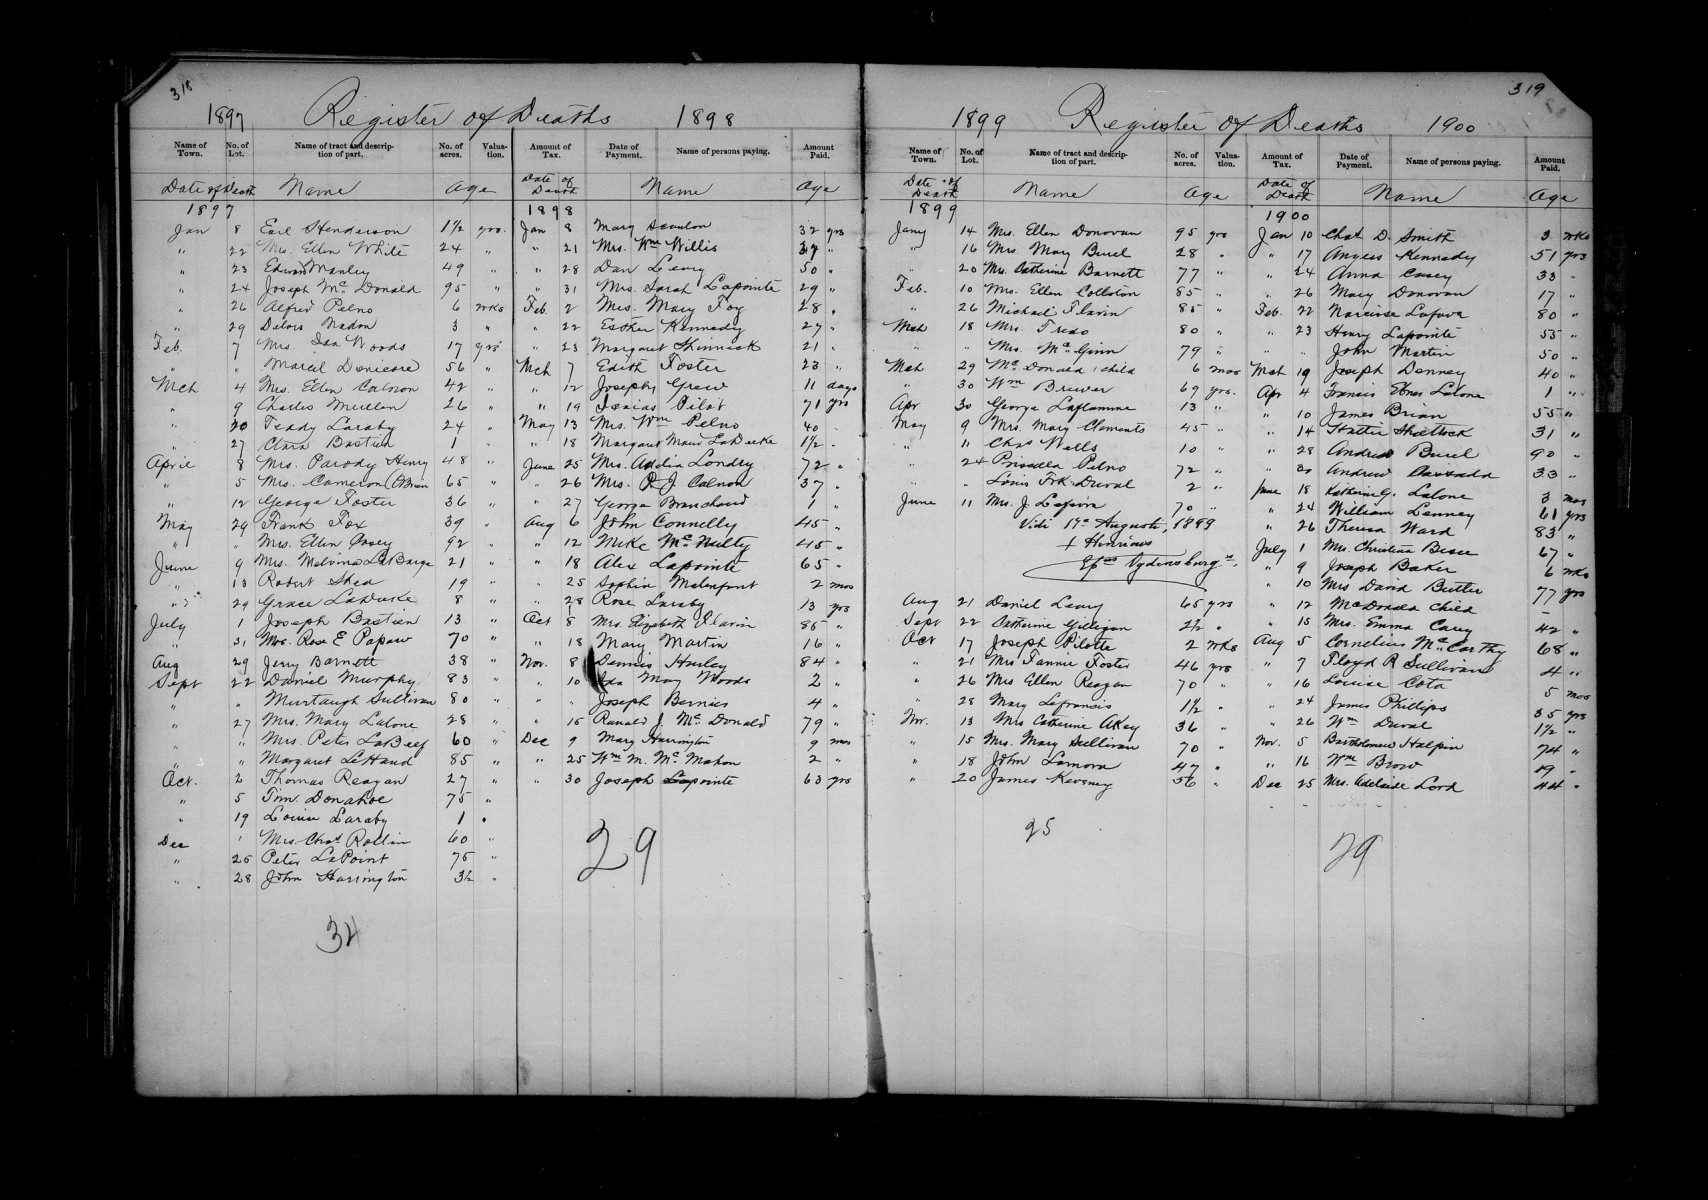 318
1897 Register of Deaths 1898
Name of Town. No. of Lot. Name of tract and description of part. No. of acres. Valuation. Amount of Tax. Date of Payment. Name of persons paying. Amount Paid.
Date of Death Name Age Date of Death Name Age
1897
Jan 8 Earl Henderson 1½ yrs.
" 22 Mrs. Ellen White 24 "
" 23 Edward Manley 49 "
" 24 Joseph Mc Donald 95 "
" 26 Alfred Pelno 6 wks
" 29 Delors Nadon 3 "
Feb. 7 Mrs. Ida Woods 17 yrs
" " Marcil Denicore 56 "
Mch 4 Mrs. Ellen Calnon 42 "
" 9 Charles Mullen 26 "
" 20 Teady Laraby 24 "
" 27 Clara Bastien 1 "
April 8 Mrs. Parody Henry 48 "
" 5 Mrs. Cameron (OBrien 65 "
" 12 George Foster 36 "
May 29 Frank Fox 39 "
" " Mrs. Ellen Casey 92 "
June 9 Mrs. Melvina LaBarge 21 "
" 13 Robert Shea 19 "
" 29 Grace LaDuke 8 "
July 1 Joseph Bastien 13 "
" 31 Mrs. Rose E Papaw 70 "
Aug 29 Jerry Barnett 38 "
Sept 22 Daniel Murphy 83 "
" " Murtaugh Sullivan 80 "
" 27 Mrs. Mary Lalone 28 "
" " Mrs. Peter LaBeef 60 "
" " Margaret LeHand 85 "
Oct. 2 Thomas Reagan 27 "
" 5 Tim Donahoe 75 "
" 19 Louise Laraby 1 "
Dec 1 Mrs. Chas Rollin 60 "
" 25 Peter LePoint 75 "
" 28 John Harrington 3½ "
34
1898
Jan 8 Mary Scanlon 32 yrs
" 21 Mrs. Wm Willis 37 "
" 28 Dan Leary 50 "
" 31 Mrs. Sarah Lapointe 29 "
Feb. 2 Mrs. Mary Foy 28 "
" 22 Esther Kennedy 27 "
" 23 Margaret Shinnick 21 "
Mch 7 Edith Foster 23 "
" 12 Joseph Grew 11 days
" 19 Isaias Pilot 71 yrs
May 13 Mrs. Wm Pelno 40 "
" 18 Margaret Maud LaBecke 1½ "
June 25 Mrs. Addia Londry 72 "
" 26 Mrs. R J Calnon 37 "
" 27 George Branchard 1 "
Aug 6 John Connelly 45 "
" 12 Mike Mc Nulty 45 "
" 18 Alex Lapointe 65 "
" 25 Sophia Malenfant 2 mos
" 28 Rose Laraby 13 yrs
Oct 8 Mrs. Elizabeth Flavin 85 "
" 18 Mary Martin 16 "
Nov. 8 Dennis Hurley 84 "
" 10 Ida May Woods 2 "
" " Joseph Bernier 4 "
" 15 Ranald J. Mc Donald 79 "
Dec 9 Mary Harrington 9 mos
" 25 Wm M. Mc Mahon 2 "
" 30 Joseph Lapointe 63 yrs
29
319
1899 Register of Deaths 1900
Name of Town. No. of Lot. Name of tract and description of part. No. of acres. Valuation. Amount of Tax. Date of Payment. Name of persons paying. Amount Paid.
Date of Death Name Age Date of Death Name Age
1899
Jany 14 Mrs. Ellen Donovan 95 yrs
" 16 Mrs. Mary Burel 28 "
" 20 Mrs. Catherine Barnett 77 "
Feb. 10 Mrs. Ellen Colloton 85 "
" 26 Michael Flavin 85 "
Mch 18 Mrs. Tredo 80 "
" " Mrs. Mc Ginn 79 "
Mch 29 Mc Donald child 6 mos
" 30 Wm Brewer 69 yrs.
Apr 30 George Laflamme 13 "
May 9 Mrs. Mary Clements 45 "
" 11 Chas Wells 10 "
" 24 Priscilla Pelno 72 "
" " Louis Frk Duval 2 "
June 11 Mrs. J. Lafaive 70 "
Vidi 17a Augusti, 1899
+ Henricus
Epus Ogdensburgs.
Aug 21 Daniel Leary 65 yrs
Sept 22 Catherine Gilligan 2½ "
Oct 17 Joseph Pilotte 2 wks
" 21 Mrs Fannie Foster 46 yrs
" 26 Mrs Ellen Reagan 70 "
" 28 Mary Lefrancis 1½ "
Nov. 13 Mrs Catherine Akey 36 "
" 15 Mrs. Mary Sullivan 70 "
" 18 John Lamora 47 "
" 20 James Keveney 56 "
25
1900
Jan 10 Chas D. Smith 3 wks
" 17 Angess Kennedy 51 yrs
" 24 Anna Casey 33 "
" 26 Mary Donovan 17 "
Feb. 22 Narcisse Lafava 80 "
" 23 Henry Lapointe 55 "
" " John Martin 50 "
Mch 19 Joseph Denney 40 "
Apr 4 Francis Ebner Lalone 1 "
" 10 James Brian 55 "
" 14 Hattie Shattuck 31 "
" 28 Andrew Burel 90 "
" 30 Andrew Cassada 33 "
June 18 Katherine G. Lalone 3 mos
" 24 William Lenney 61 yrs
" 26 Theresa Ward 83 "
July 1 Mrs. Christina Besee 67 "
" 9 Joseph Baker 6 wks
" 10 Mrs David Butler 77 yrs
" 12 McDonald child –
" 15 Mrs. Emma Carey 42 "
Aug 5 Cornelius Mc Carthy 68 "
" 7 Floyd R Sullivan 4 "
" 16 Louise Cota 5 mos
" 24 James Phillips 35 yrs
" 26 Wm Duval 1½ "
Nov. 5 Bartholomew Halpin 74 "
" 16 Wm Brow 19 "
Dec 25 Mrs. Adelaide Lord 44 "
29